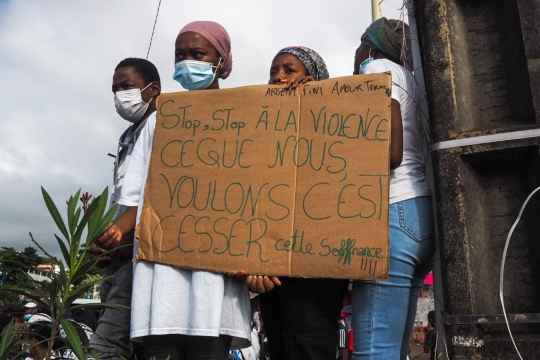 ARGENT FINI AMOUR TERMINÉ
Stop, Stop À LA VIOLENCE
CEQUE NOUS
VOULONS C'EST
CESSER cette Souffrance...
!!!!